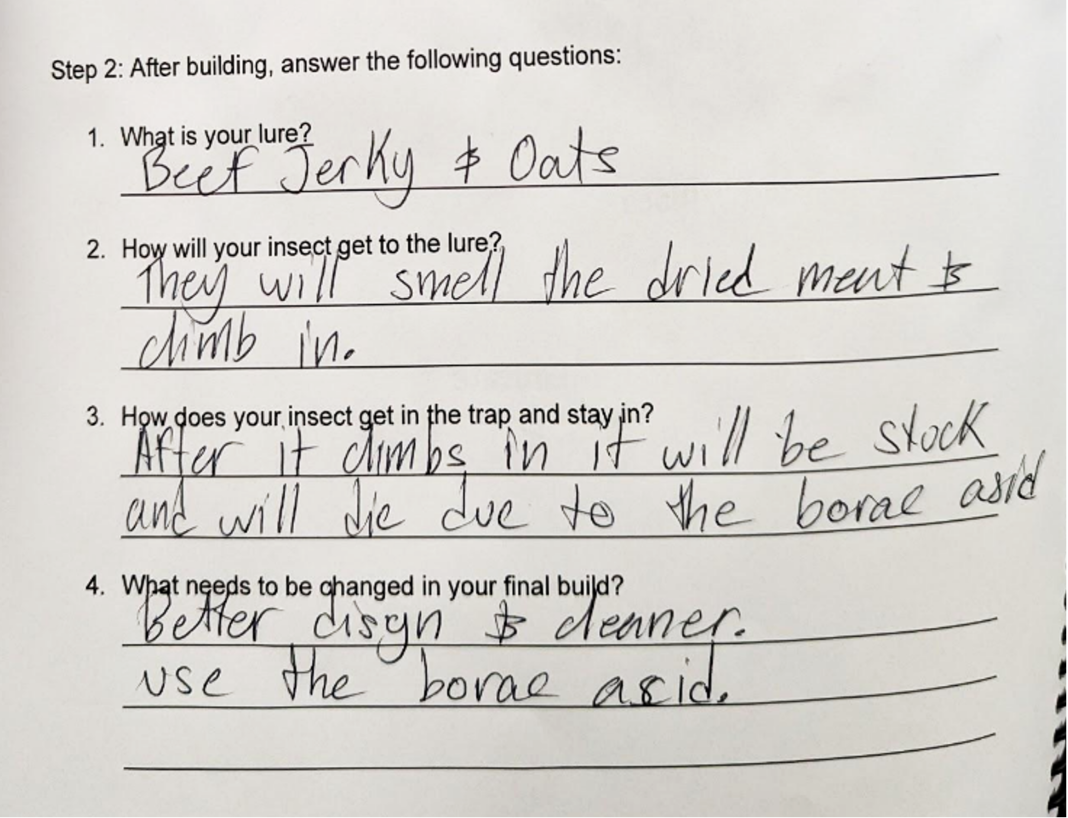 Step 2: After building, answer the following questions:
1. What is your lure?
Beef Jerky & Oats
2. How will your insect get to the lure?
They will smell the dried meat &
climb in.
3. How does your insect get in the trap and stay in?
After it climbs in it will be stock
and will die due to the borae asid
4. What needs to be changed in your final build?
Better disgn & cleaner.
use the borae acid.